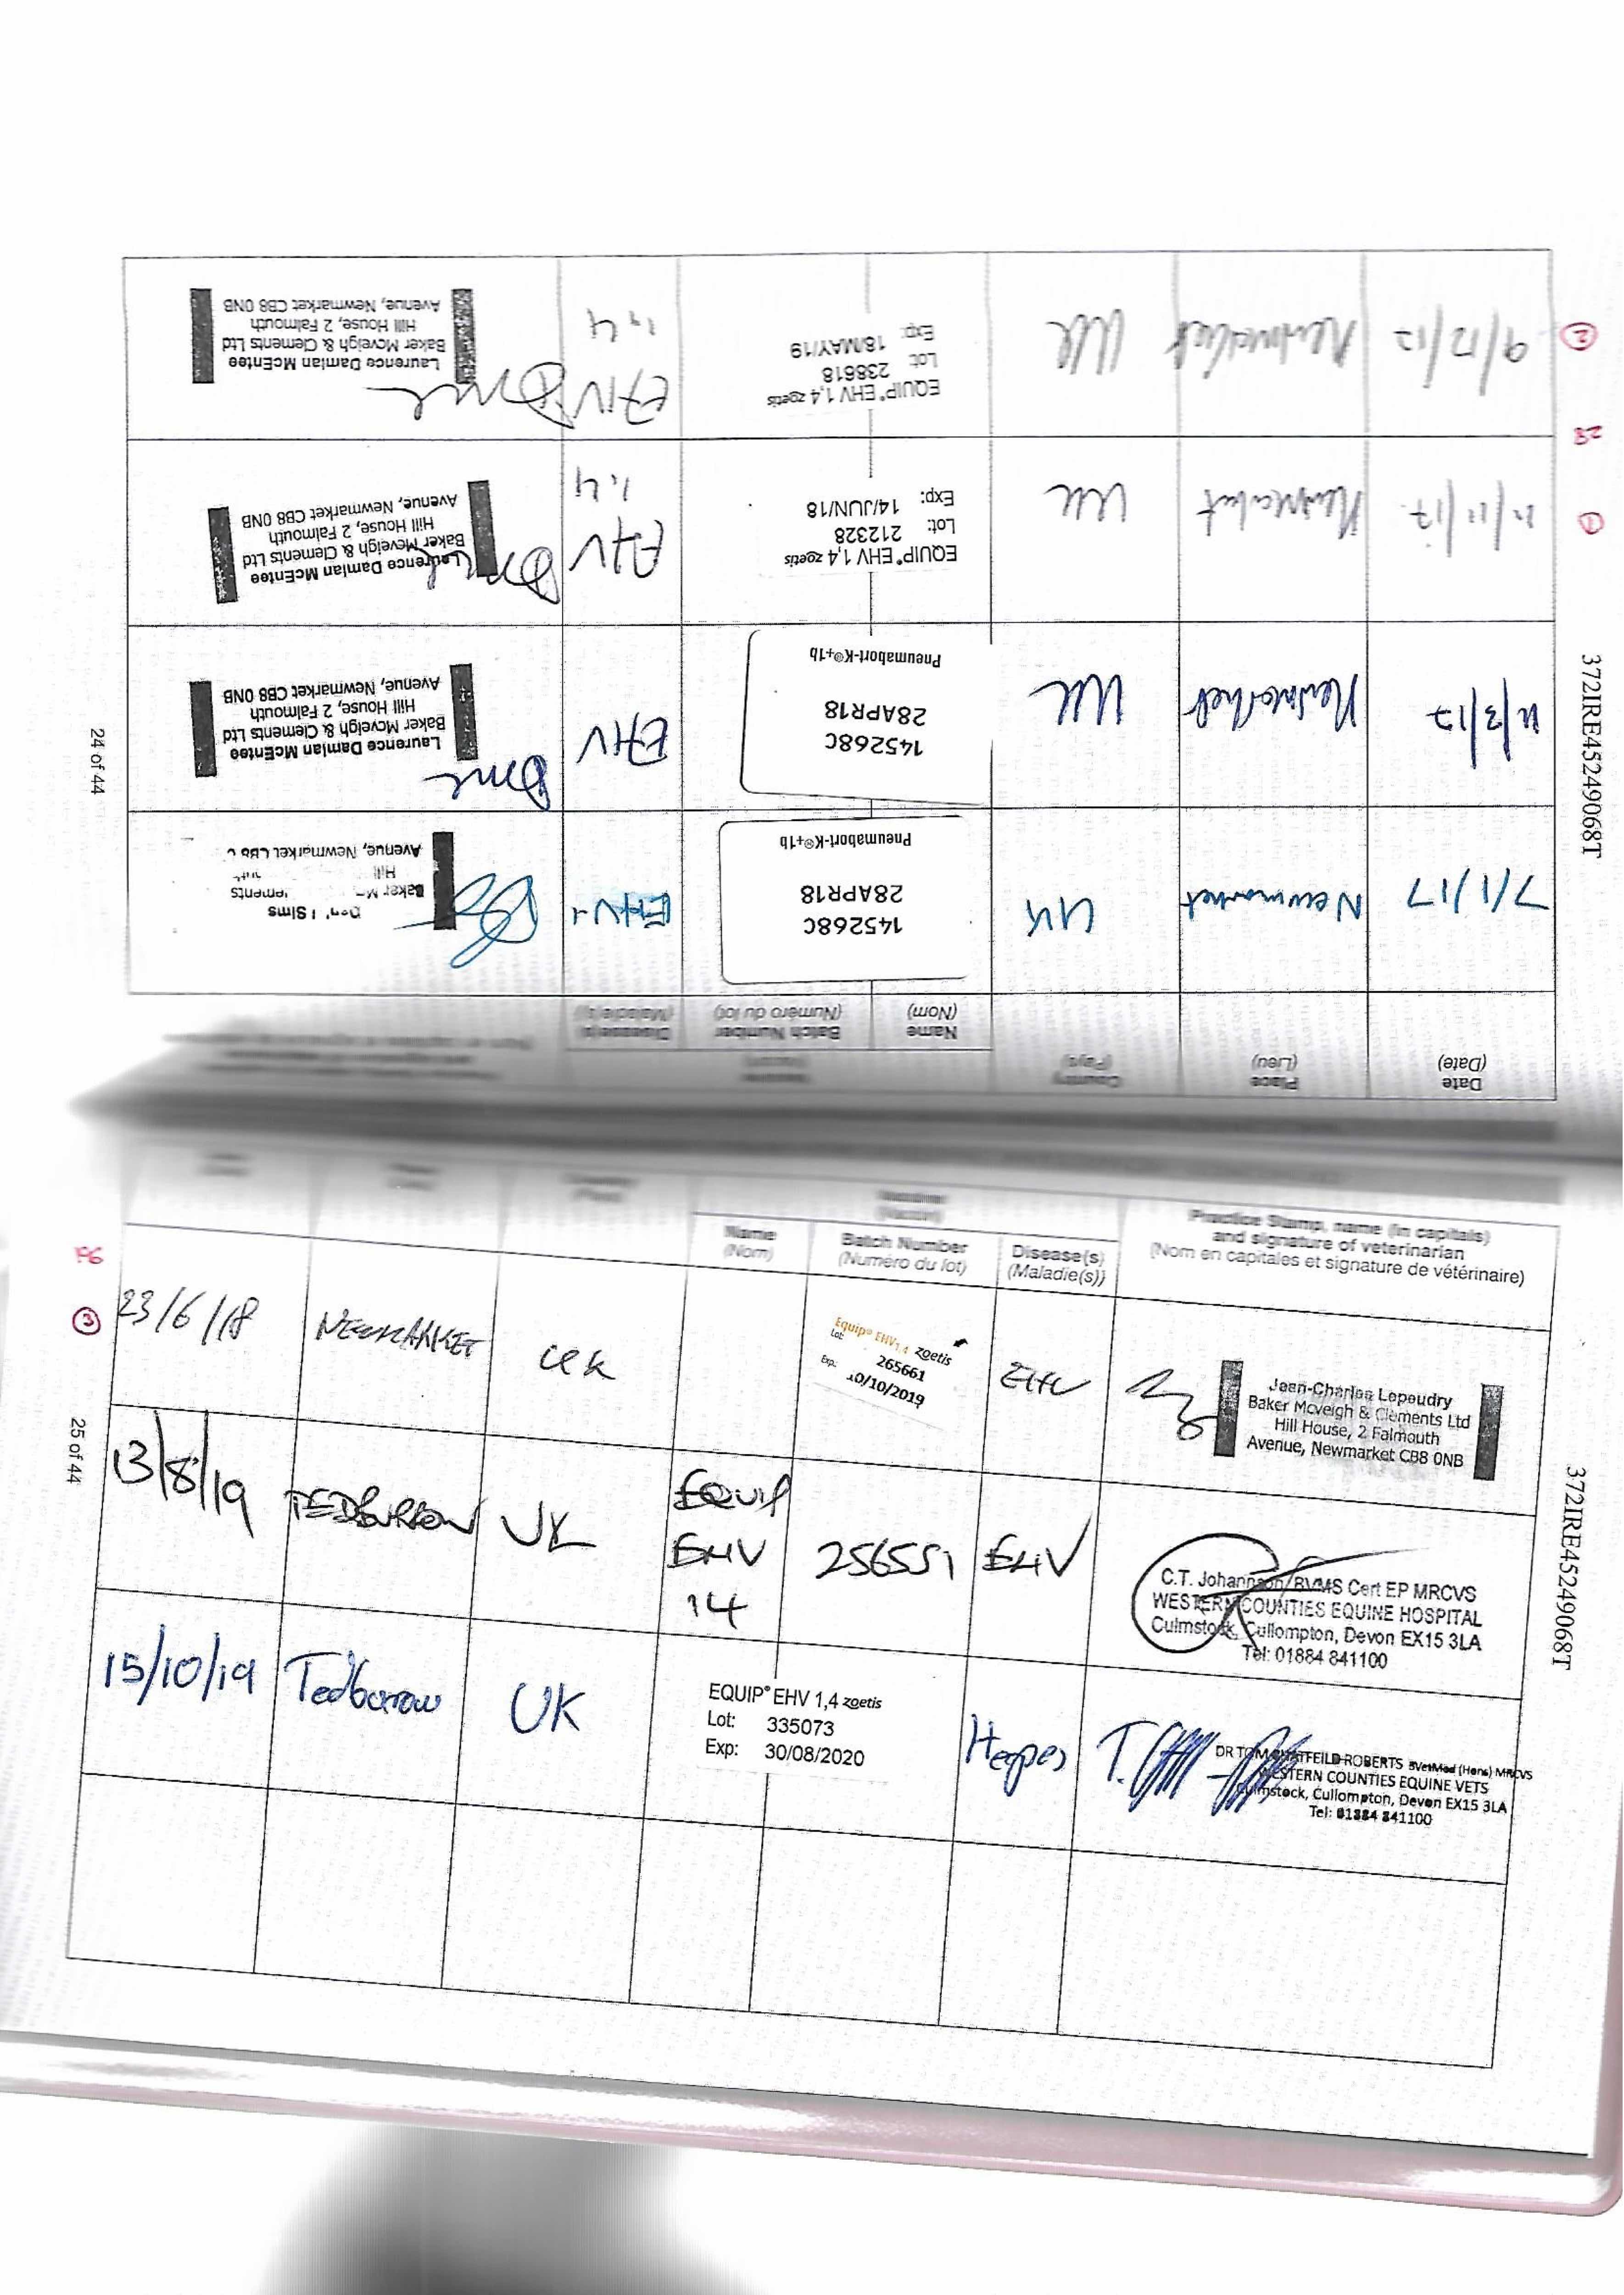 Date
(Date)
Place
(Lieu)
Country
(Pays)
Name
(Nom)
Batch Number
(Numéro du lot)
Disease(s)
(Maladie(s))
7/1/17
Newmarket
UK
145268C
28APR18
Pneumabort-K®+1b
EHV-1
Sims
Baker
Hill
Avenue, Newmarket CB8
11/3/17
Newmarket
UK
145268C
28APR18
Pneumabort-K®+1b
EHV
Laurence Damian McEntee
Baker Mcveigh & Clements Ltd
Hill House, 2 Falmouth
Avenue, Newmarket CB8 0NB
①
11/11/17
Newmarket
UK
EQUIP® EHV 1,4 zoetis
Lot: 212328
Exp: 14/JUN/18
EHV
1,4
Laurence Damian McEntee
Baker Mcveigh & Clements Ltd
Hill House, 2 Falmouth
Avenue, Newmarket CB8 0NB
28
②
9/12/17
Newmarket
UK
EQUIP® EHV 1,4 zoetis
Lot: 238618
Exp: 18/MAY/19
EHV
1,4
Laurence Damian McEntee
Baker Mcveigh & Clements Ltd
Hill House, 2 Falmouth
Avenue, Newmarket CB8 0NB
24 of 44
372IRE45249068T
Name
(Nom)
Batch Number
(Numéro du lot)
Disease(s)
(Maladie(s))
Practice Stamp, name (in capitals)
and signature of veterinarian
(Nom en capitales et signature de vétérinaire)
196
③
23/6/18
NEWMARKET
UK
Equip® EHV1,4 zoetis
Lot: 265661
Exp. 10/10/2019
EHV
Jean-Charles Lepeudry
Baker Mcveigh & Clements Ltd
Hill House, 2 Falmouth
Avenue, Newmarket CB8 0NB
13/8/19
TEDBURROW
UK
EQUIP
EHV
14
256551
EHV
C.T. Johannson BVMS Cert EP MRCVS
WESTERN COUNTIES EQUINE HOSPITAL
Culmstock, Cullompton, Devon EX15 3LA
Tel: 01884 841100
15/10/19
Tedburrow
UK
EQUIP® EHV 1,4 zoetis
Lot: 335073
Exp: 30/08/2020
Herpes
DR TOM CHATFEILD-ROBERTS BVetMed (Hons) MRCVS
WESTERN COUNTIES EQUINE VETS
Culmstock, Cullompton, Devon EX15 3LA
Tel: 01884 841100
25 of 44
372IRE45249068T